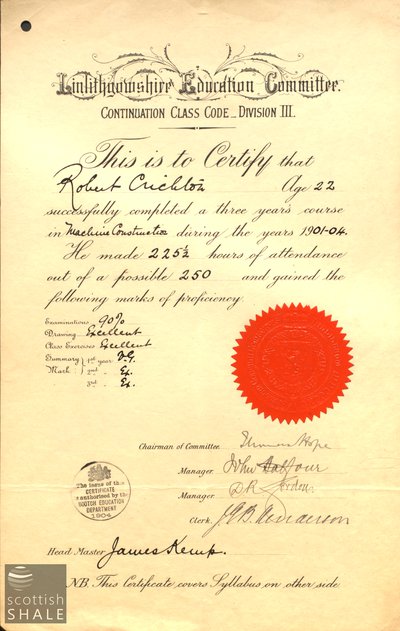 Linlithgowshire Education Committee.
CONTINUATION CLASS CODE_DIVISION III.
This is to Certify that
Robert Crichton Age 22
successfully completed a three year's course
in Machine Construction during the years 1901-04.
He made 225½ hours of attendance
out of a possible 250 and gained the
following marks of proficiency.
Examinations 90%
Drawing Excellent
Class Exercises Excellent
Summary 1st year V.G.
Mark 2nd " Ex.
3rd " Ex.
Chairman of Committee. Hope
Manager. John Balfour
Manager. D.R. Gordon
Clerk. Henderson
The issue of this
CERTIFICATE
is authorised by the
SCOTCH EDUCATION
DEPARTMENT
1904
Head Master James Kemp.
NB. This Certificate covers Syllabus on other side
scottish
SHALE